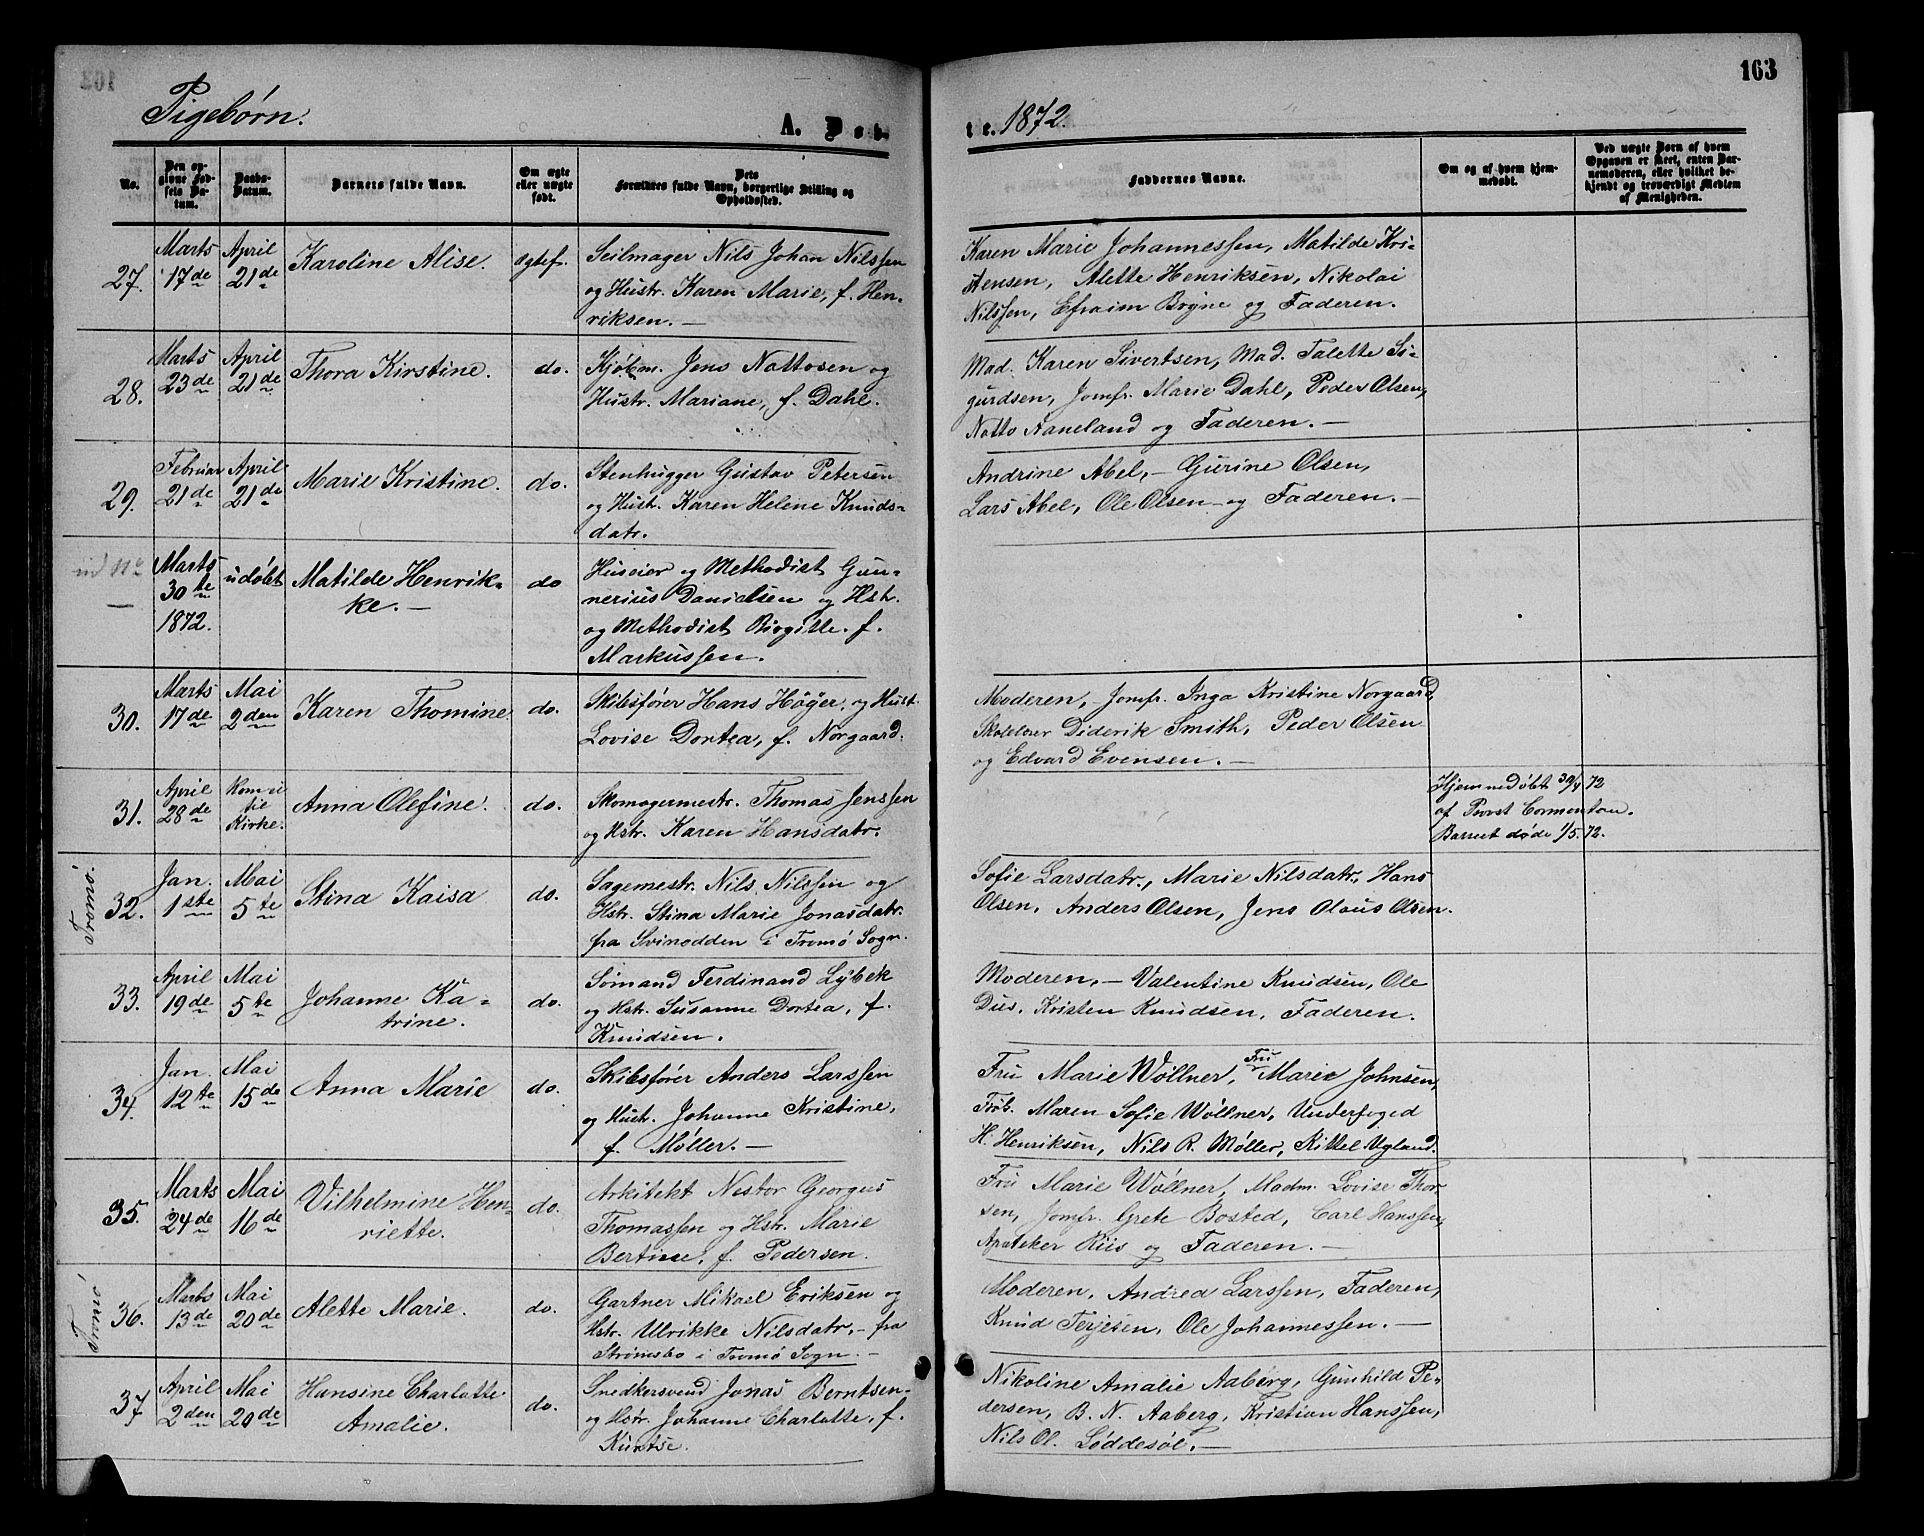 163
Pigebørn.
A. Døb-
te. 1872.
No.
Den op-
givne Fød-
sels Da-
tum.
Daabs-
Datum.
Barnets fulde Navn.
Om ægte
eller uægte
født.
Dets
Forældres fulde Navn, borgerlige Stilling og
Opholdssted.
Faddernes Navne.
Om og af hvem hjem-
medøbt.
Ved uægte Børn af hvem
Opgaven er skeet, enten Bar-
nemoderen, eller hvilket be-
kjendt og troværdigt Medlem
af Menigheden.
27.
Marts
17de
April
21de
Karoline Alise.
egtef.
Seilmager Nils Johan Nilssen
og Hustr. Karen Marie, f. Hen-
riksen. —
Karen Marie Johannessen, Matilde Kri-
stensen, Alette Henriksen, Nikolai
Nilssen, Efraim Bryne og Faderen.
28.
Marts
23de
April
21de
Thora Kirstine.
do.
Kjøbm. Jens Nottosen og
Hustr. Mariane, f. Dahl.
Mad. Karen Sivertsen, Mad. Talette Si-
gurdsen, Jomfr. Marie Dahl, Peder Olsen,
Notto Naneland og Faderen. —
29.
Februar
21de
April
21de
Marie Kristine.
do.
Stenhugger Gustav Petersen
og Hust. Karen Helene Knuds-
datr.
Andrine Abel, — Gurine Olsen,
Lars Abel, Ole Olsen og Faderen. —
ud No
—
Marts
30te
1872.
udøbt
Matilde Henrik-
ke. —
do
Huseier og Methodist Gun-
nerius Danielsen og Hstr.
og Methodist Birgitte. f.
Markussen.
30.
Marts
17de
Mai
2den
Karen Thomine.
do.
Skibsfører Hans Høyer, og Hust.
Lovise Dortea, f. Norgaard.
Moderen, Jomfr. Inga Kristine Norgaard,
Skolelærer Diderik Smith, Peder Olsen
og Edvard Evensen. —
31.
April
28de
Kom ei
til
Kirke.
Anna Olefine.
do.
Skomagermestr. Thomas Jenssen
og Hstr. Karen Hansdatr.
Hjemmedøbt 30/4 72
af Provst Cormontan.
Barnet døde 1/5. 72.
Tromö.
32.
Jan.
1ste
Mai
5te
Stina Kaisa
do.
Sagemestr. Nils Nilssen og
Hstr. Stina Marie Jonasdatr.
fra Svinodden i Tromø Sogn.
Sofie Larsdatr., Marie Nilsdatr., Hans
Olsen, Anders Olsen, Jens Olaus Olsen.
33.
April
19de
Mai
5te
Johanne Ka-
trine.
do.
Sømand Ferdinand Lybek
og Hstr. Susanne Dortea, f.
Knudsen.
Moderen, — Valentine Knudsen, Ole
Dus, Kristen Knudsen, Faderen.
34.
Jan.
12te
Mai
15de
Anna Marie
do.
Skibsfører Anders Larssen
og Hust. Johanne Kristine,
f. Møller. —
Fru Marie Wöllner, Fru Marie Johnsen,
Frøk. Maren Sofie Wöllner, Underfoged
H. Henriksen, Nils R. Møller, Kittel Ugland.
35.
Marts
24de
Mai
16de
Vilhelmine Hen-
riette.
do.
Arkitekt Nestor Georgus
Thomassen og Hstr. Marie
Bertine, f. Pedersen.
Fru Marie Wöllner, Madm. Lovise Thor-
sen, Jomfr. Grete Bosted, Carl Hanssen,
Apoteker Riis og Faderen. —
Tromö
36.
Marts
13de
Mai
20de
Alette Marie.
do.
Gartner Mikael Eriksen og
Hstr. Ulrikke Nilsdatr, — fra
Strømsbo i Tromø Sogn. —
Moderen, Andrea Larssen, Faderen,
Knud Terjesen, Ole Johannessen. —
37.
April
2den
Mai
20de
Hansine Charlotte
Amalie.
do.
Snedkersvend Jonas Berntsen
og Hstr. Johanne Charlotte, f.
Kuntse.
Nikoline Amalie Aaberg, Gunhild Pe-
dersen, B. N. Aaberg, Kristian Hanssen,
Nils Ol. Løddesøl. —